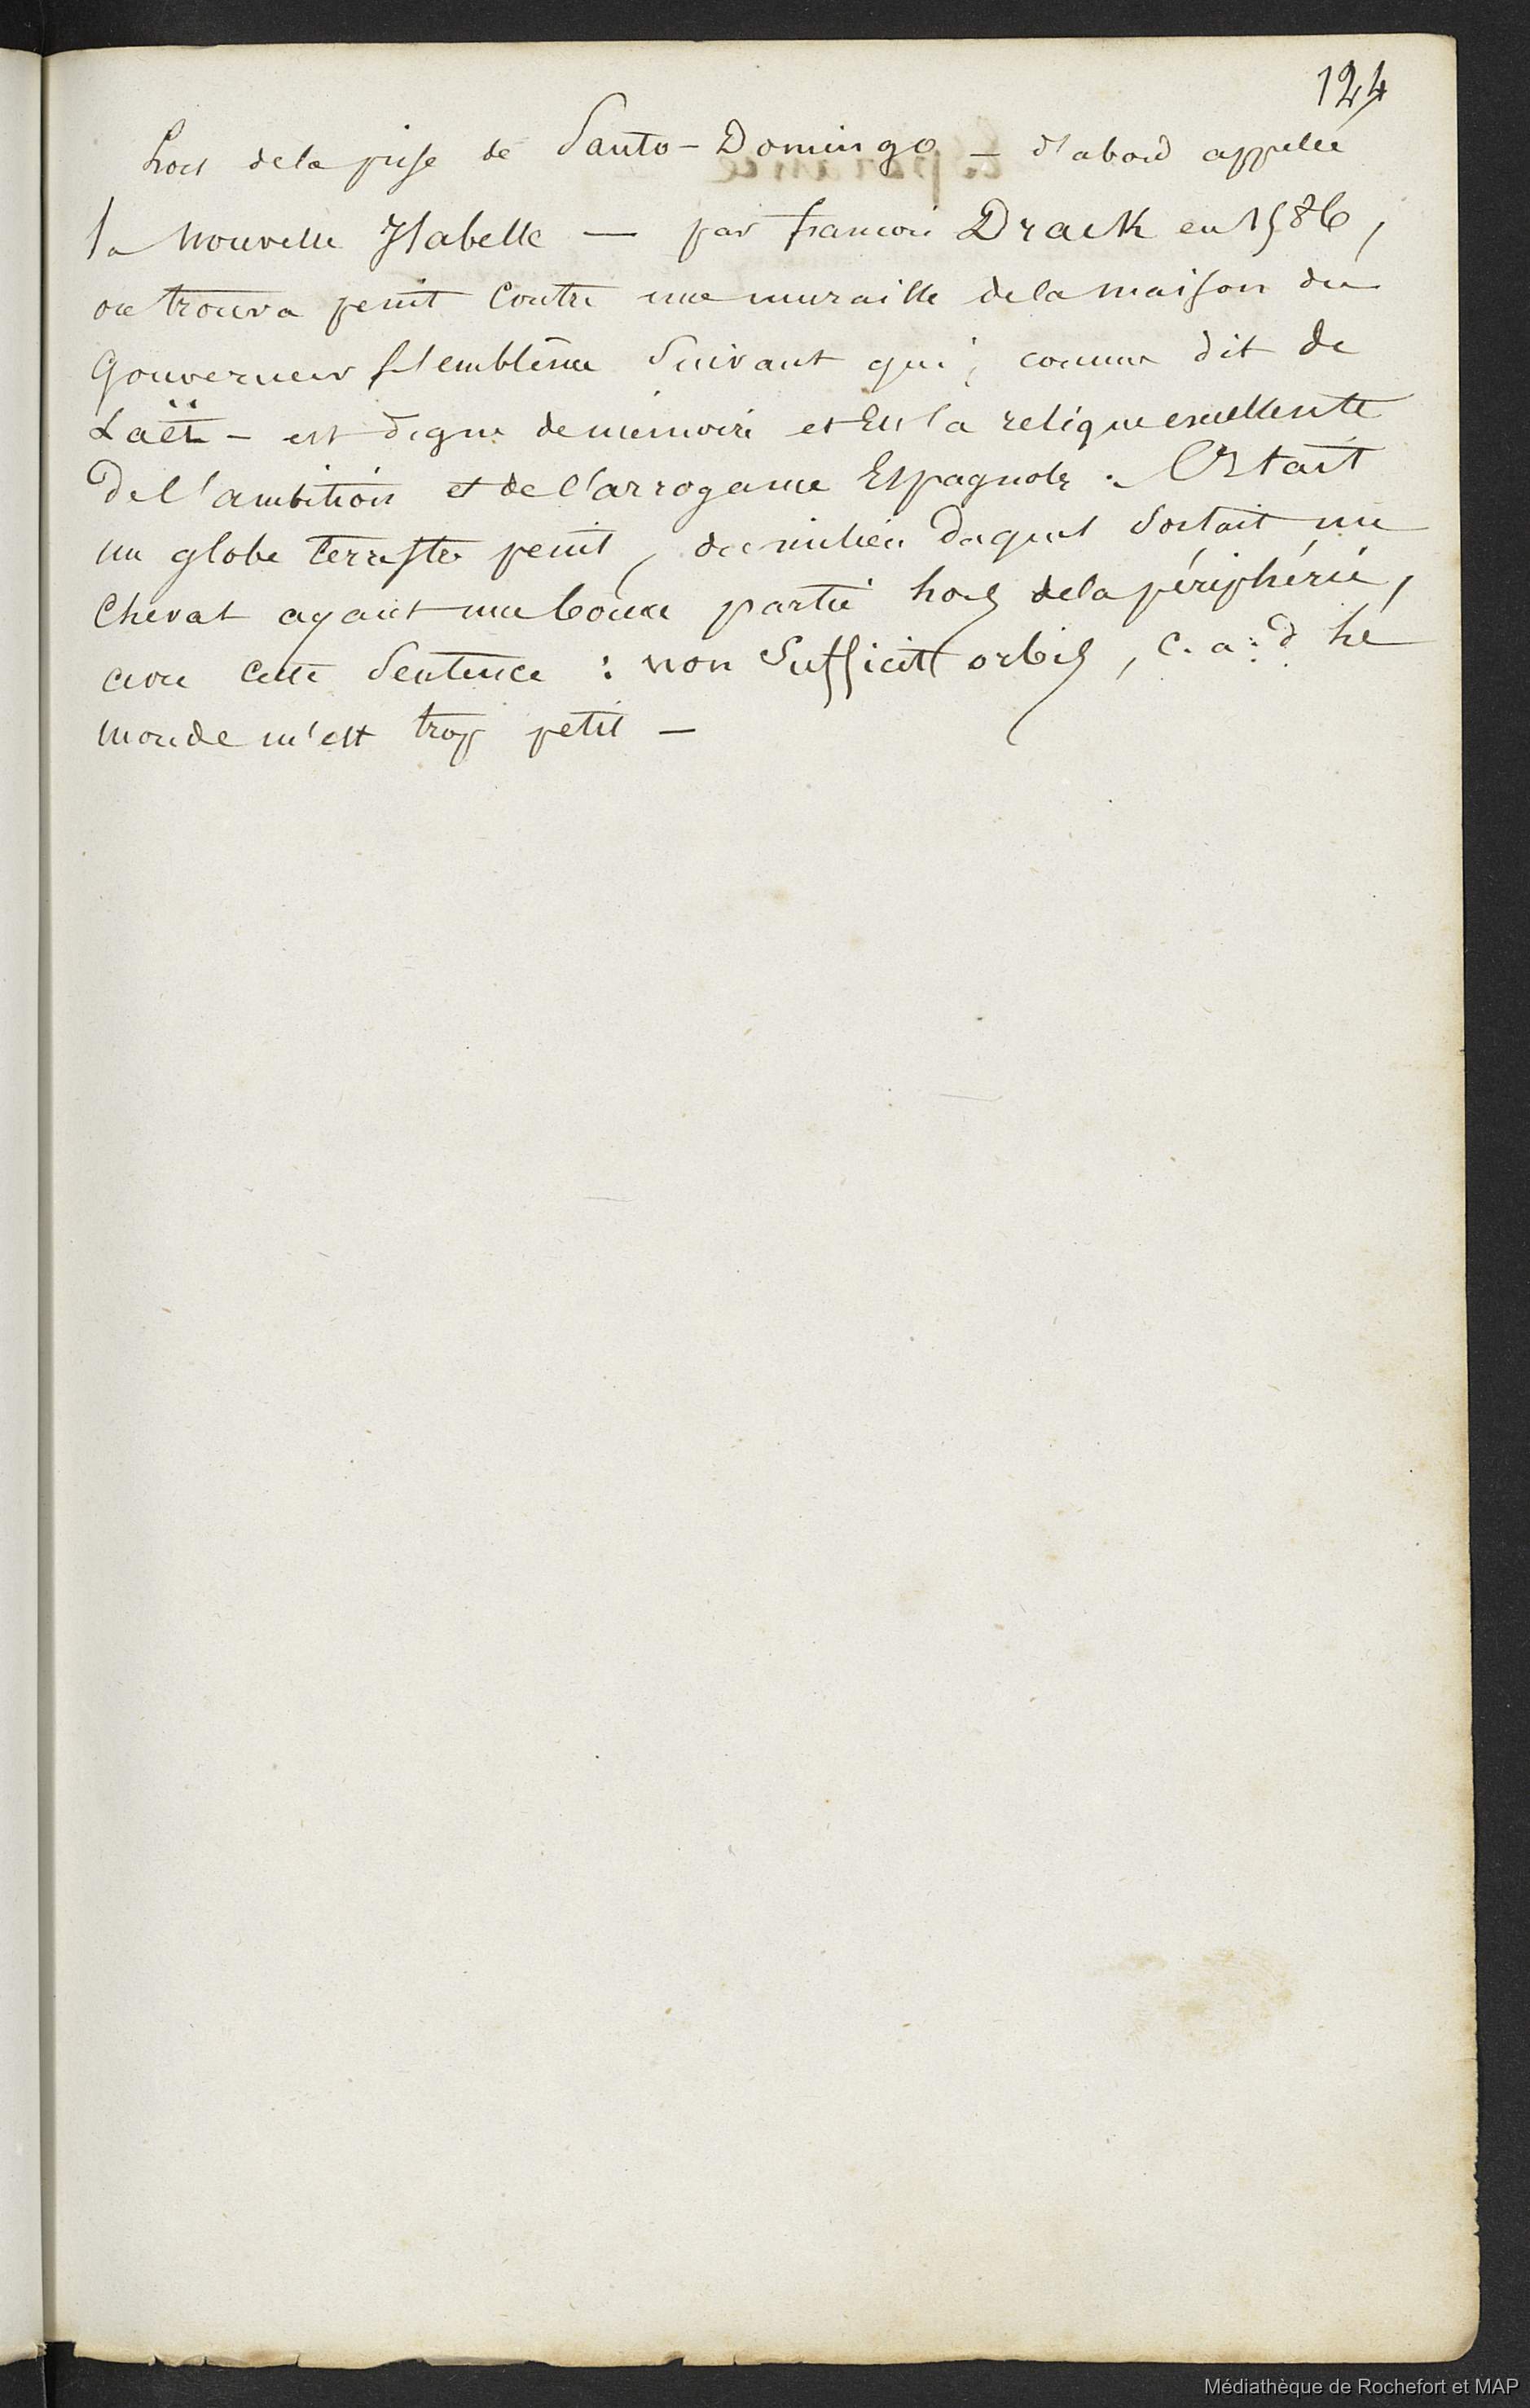 124
Lors de la prise de Santo-Domingo – d'abord appelée
la Nouvelle Isabelle — par françois Drack en 1586,
on trouva peint contre une muraille de la maison du
Gouverneur l'emblême suivant qui, comme dit de
Laët – est digne de mémoire et est la relique excellente
de l'ambition et de l'arrogance Espagnole. C'était
un globe terrestre peint, du milieu duquel sortait un
cheval ayant une bonne partie hors de la périphérie,
avec cette sentence : non sufficit orbis, c. a. d le
monde m'est trop petit —
Médiathèque de Rochefort et MAP